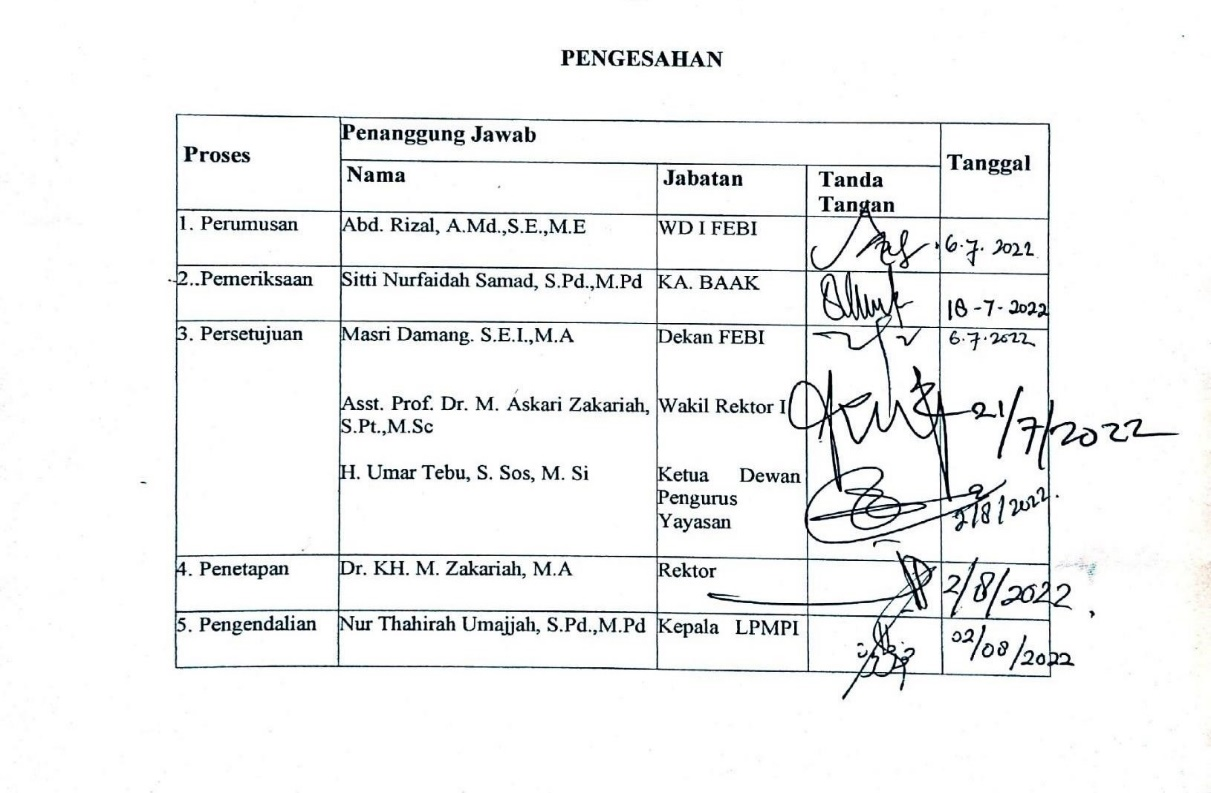 PENGESAHAN
Proses
Penanggung Jawab
Tanggal
Nama
Jabatan
Tanda
Tangan
1. Perumusan
Abd. Rizal, A.Md.,S.E.,M.E
WD I FEBI
6.7. 2022
2..Pemeriksaan
Sitti Nurfaidah Samad, S.Pd.,M.Pd
KA. BAAK
18-7-2022
3. Persetujuan
Masri Damang. S.E.I.,M.A
Dekan FEBI
6.7.2022
Asst. Prof. Dr. M. Askari Zakariah,
S.Pt.,M.Sc
Wakil Rektor I
21/7/2022
H. Umar Tebu, S. Sos, M. Si
Ketua Dewan
Pengurus
Yayasan
2/8/2022.
4. Penetapan
Dr. KH. M. Zakariah, M.A
Rektor
2/8/2022
5. Pengendalian
Nur Thahirah Umajjah, S.Pd.,M.Pd
Kepala LPMPI
02/08/2022